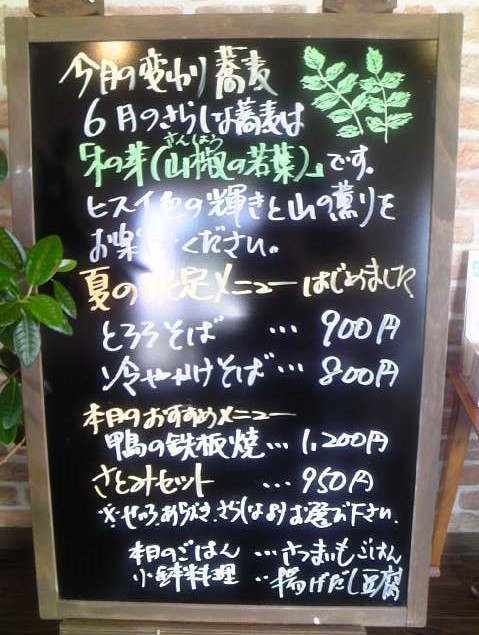 今月の変わり蕎麦
6月のさらしな蕎麦は
さんしょう
「木の芽(山椒の若葉)」です。
ヒスイ色の輝きと山の薫りを
お楽しみください。
夏の限定メニューはじめました
とろろそば … 900円
冷やかけそば … 800円
本日のおすすめメニュー
鴨の鉄板焼 … 1,200円
さとみセット … 950円
※せいろ,あらびき,さらしなよりお選び下さい。
本日のごはん … さつまいもごはん
小鉢料理 … 揚げだし豆腐